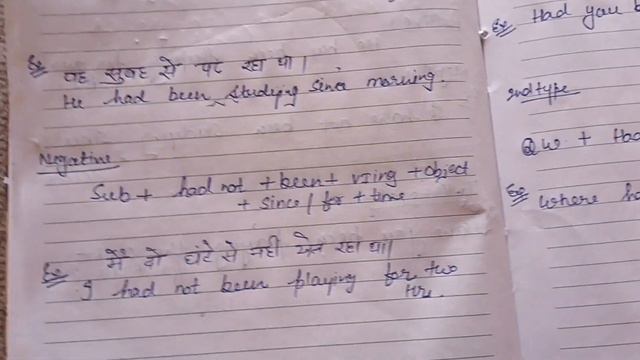 Ex वह सुबह से पढ़ रहा था।
He had been studying since morning.
Negative
Sub + had not + been + VIing + object
+ since / for + time
Ex मैं दो घंटे से नही खेल रहा था।
I had not been playing for two
Hr.
Ex Had you
2nd type
Qw + Had
Ex where